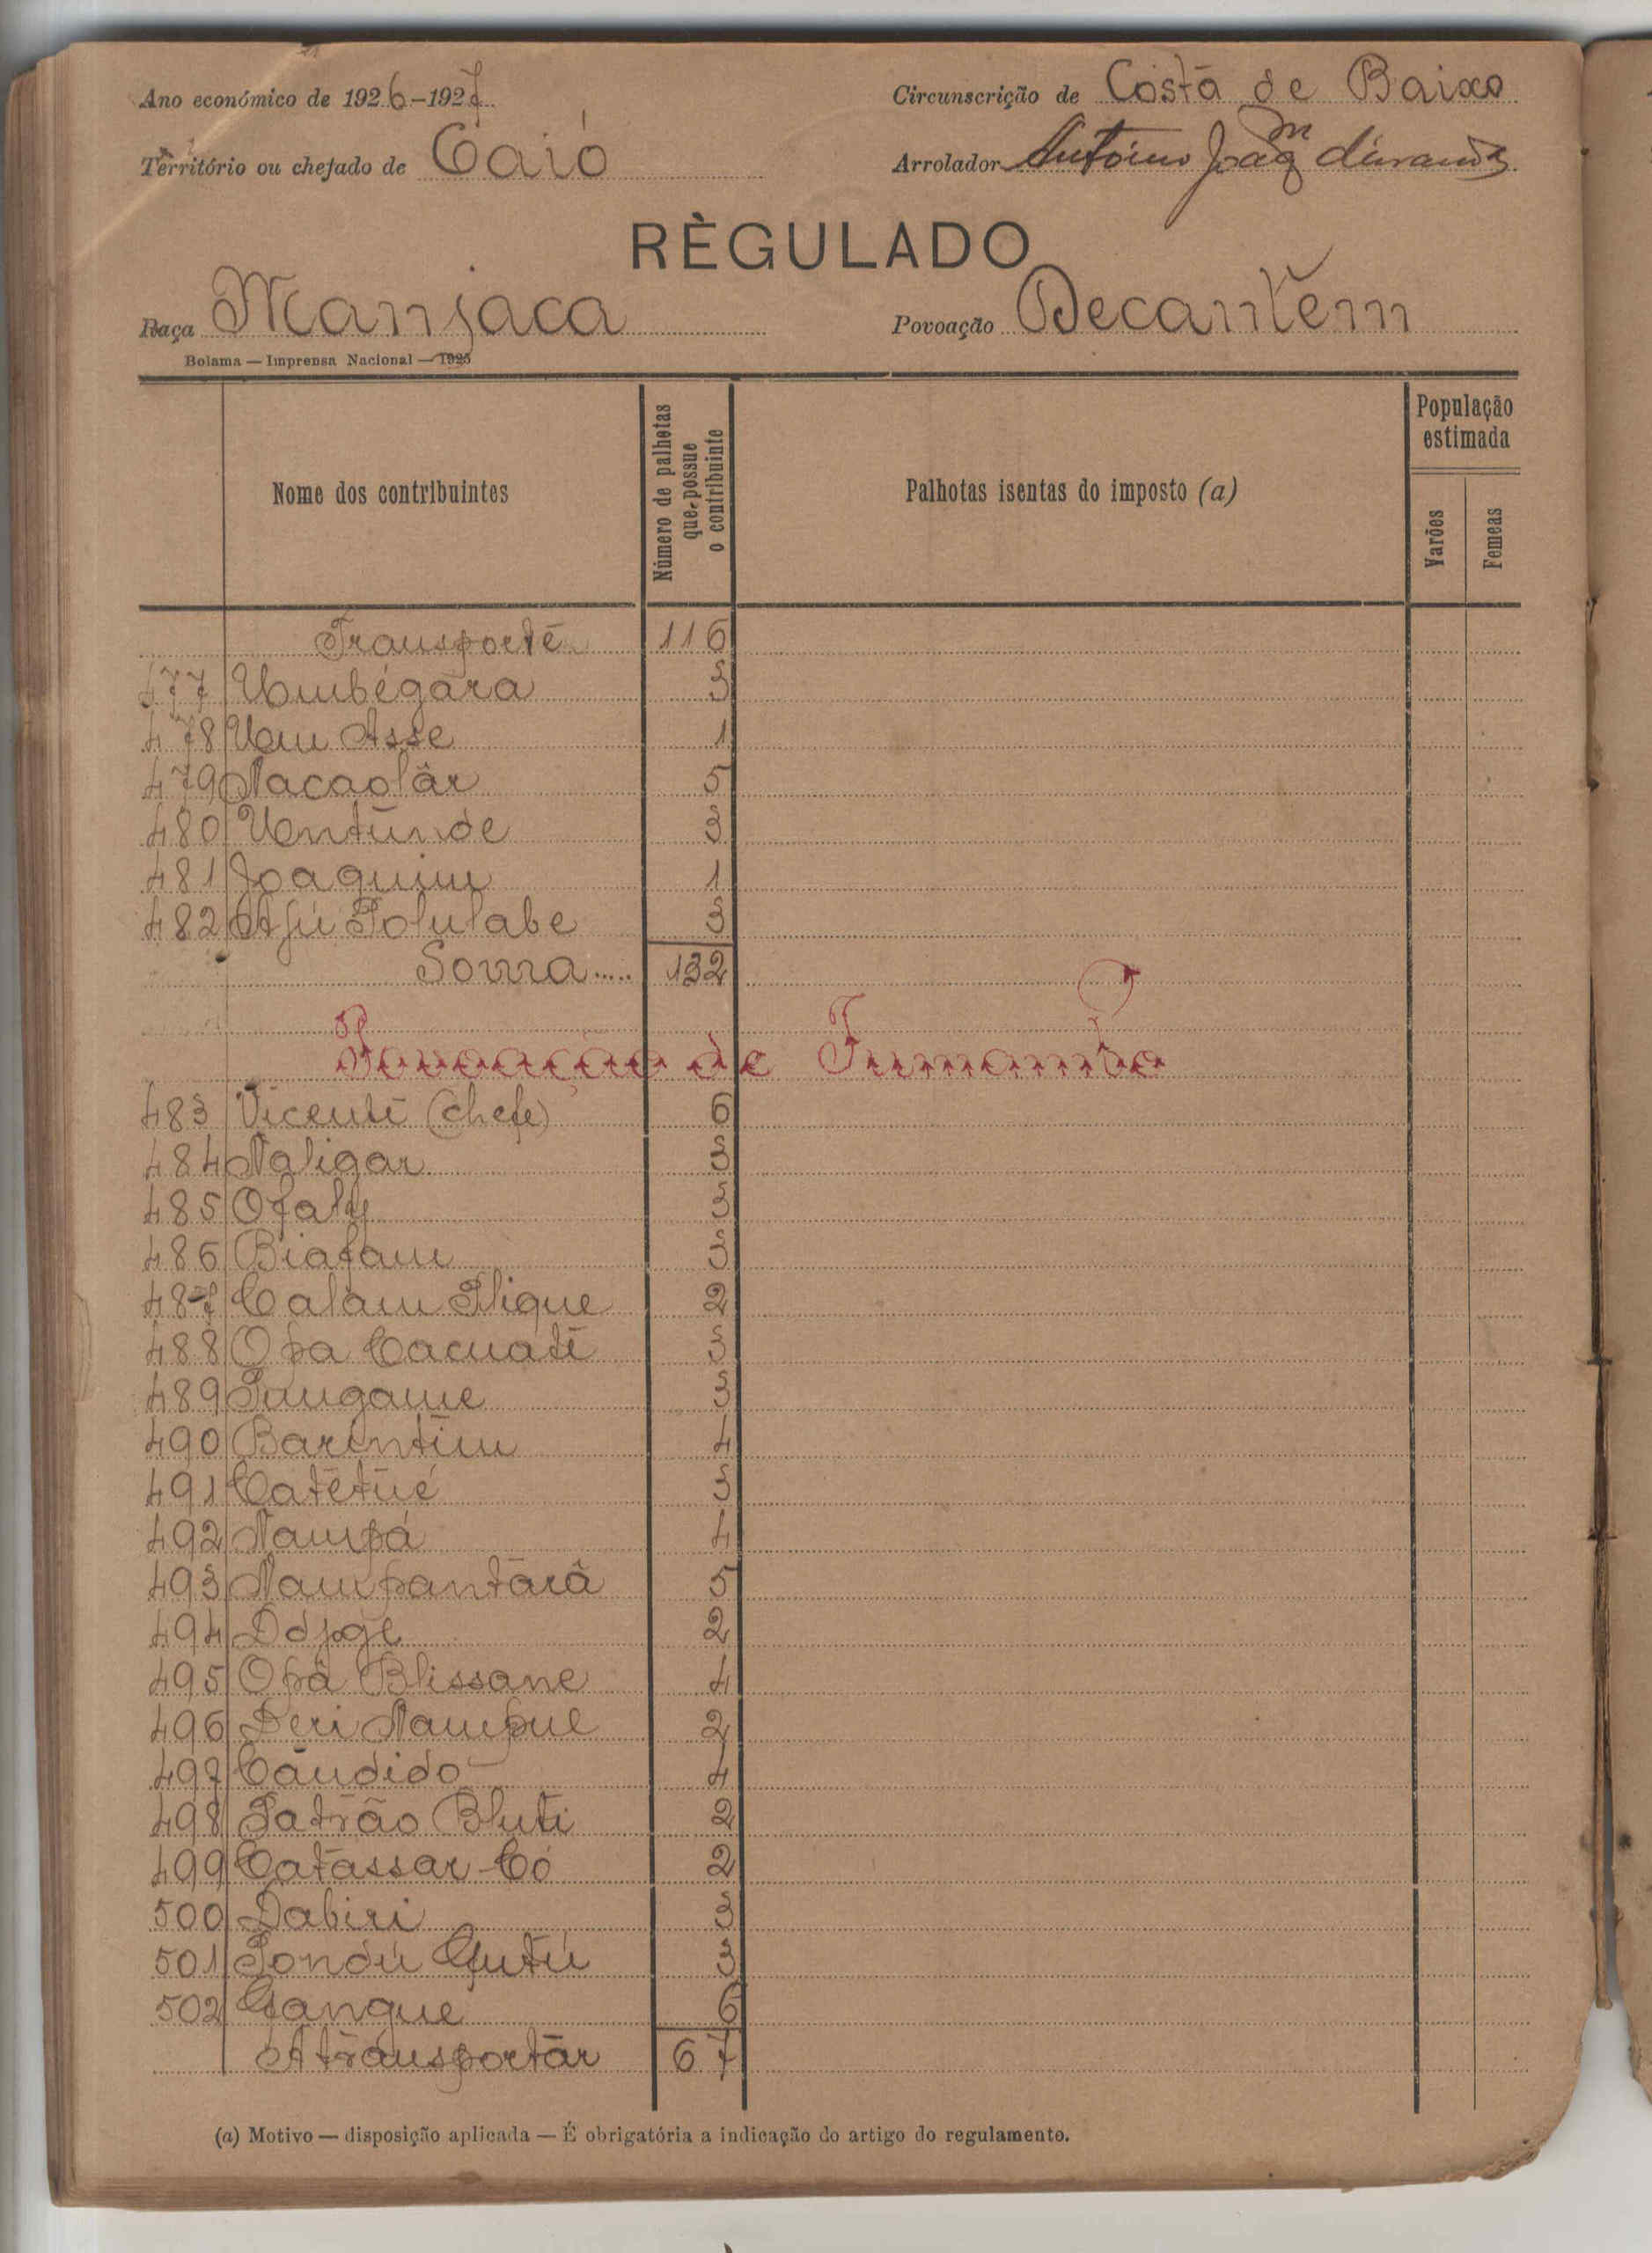 Ano económico de 1926-1927
Circunscrição de Costa de Baixo
Território ou chefado de Caió
Arrolador António Joaqm
RÈGULADO
Raça Manjaca
Povoação Decantem
Bolama — Imprensa Nacional — 1925
Nome dos contribuintes
Número de palhotas que possue o contribuinte
Palhotas isentas do imposto (a)
População estimada
Varões
Femeas
Transporte 116
477 Umbégara 3
478 Um Asse 1
479 Nacaolâr 5
480 Untunde 3
481 Joaquim 1
482 Afú Polulabe 3
Soma..... 132
Povoação de Tumambo
483 Vicente (chefe) 6
484 Naligar 3
485 Ofaly 3
486 Biafam 3
487 Calam Plique 2
488 Opa Cacuate 3
489 Pungame 3
490 Barintim 4
491 Catetué 3
492 Nampá 4
493 Nampantarâ 5
494 Dójoge 2
495 Opâ Blissane 4
496 Deri Nampul 2
497 Cândido 4
498 Patrão Bluti 2
499 Catassar Có 2
500 Dabiri 3
501 Pondú Gutú 3
502 Gangue 6
A transportar 67
(a) Motivo — disposição aplicada — É obrigatória a indicação do artigo do regulamento.